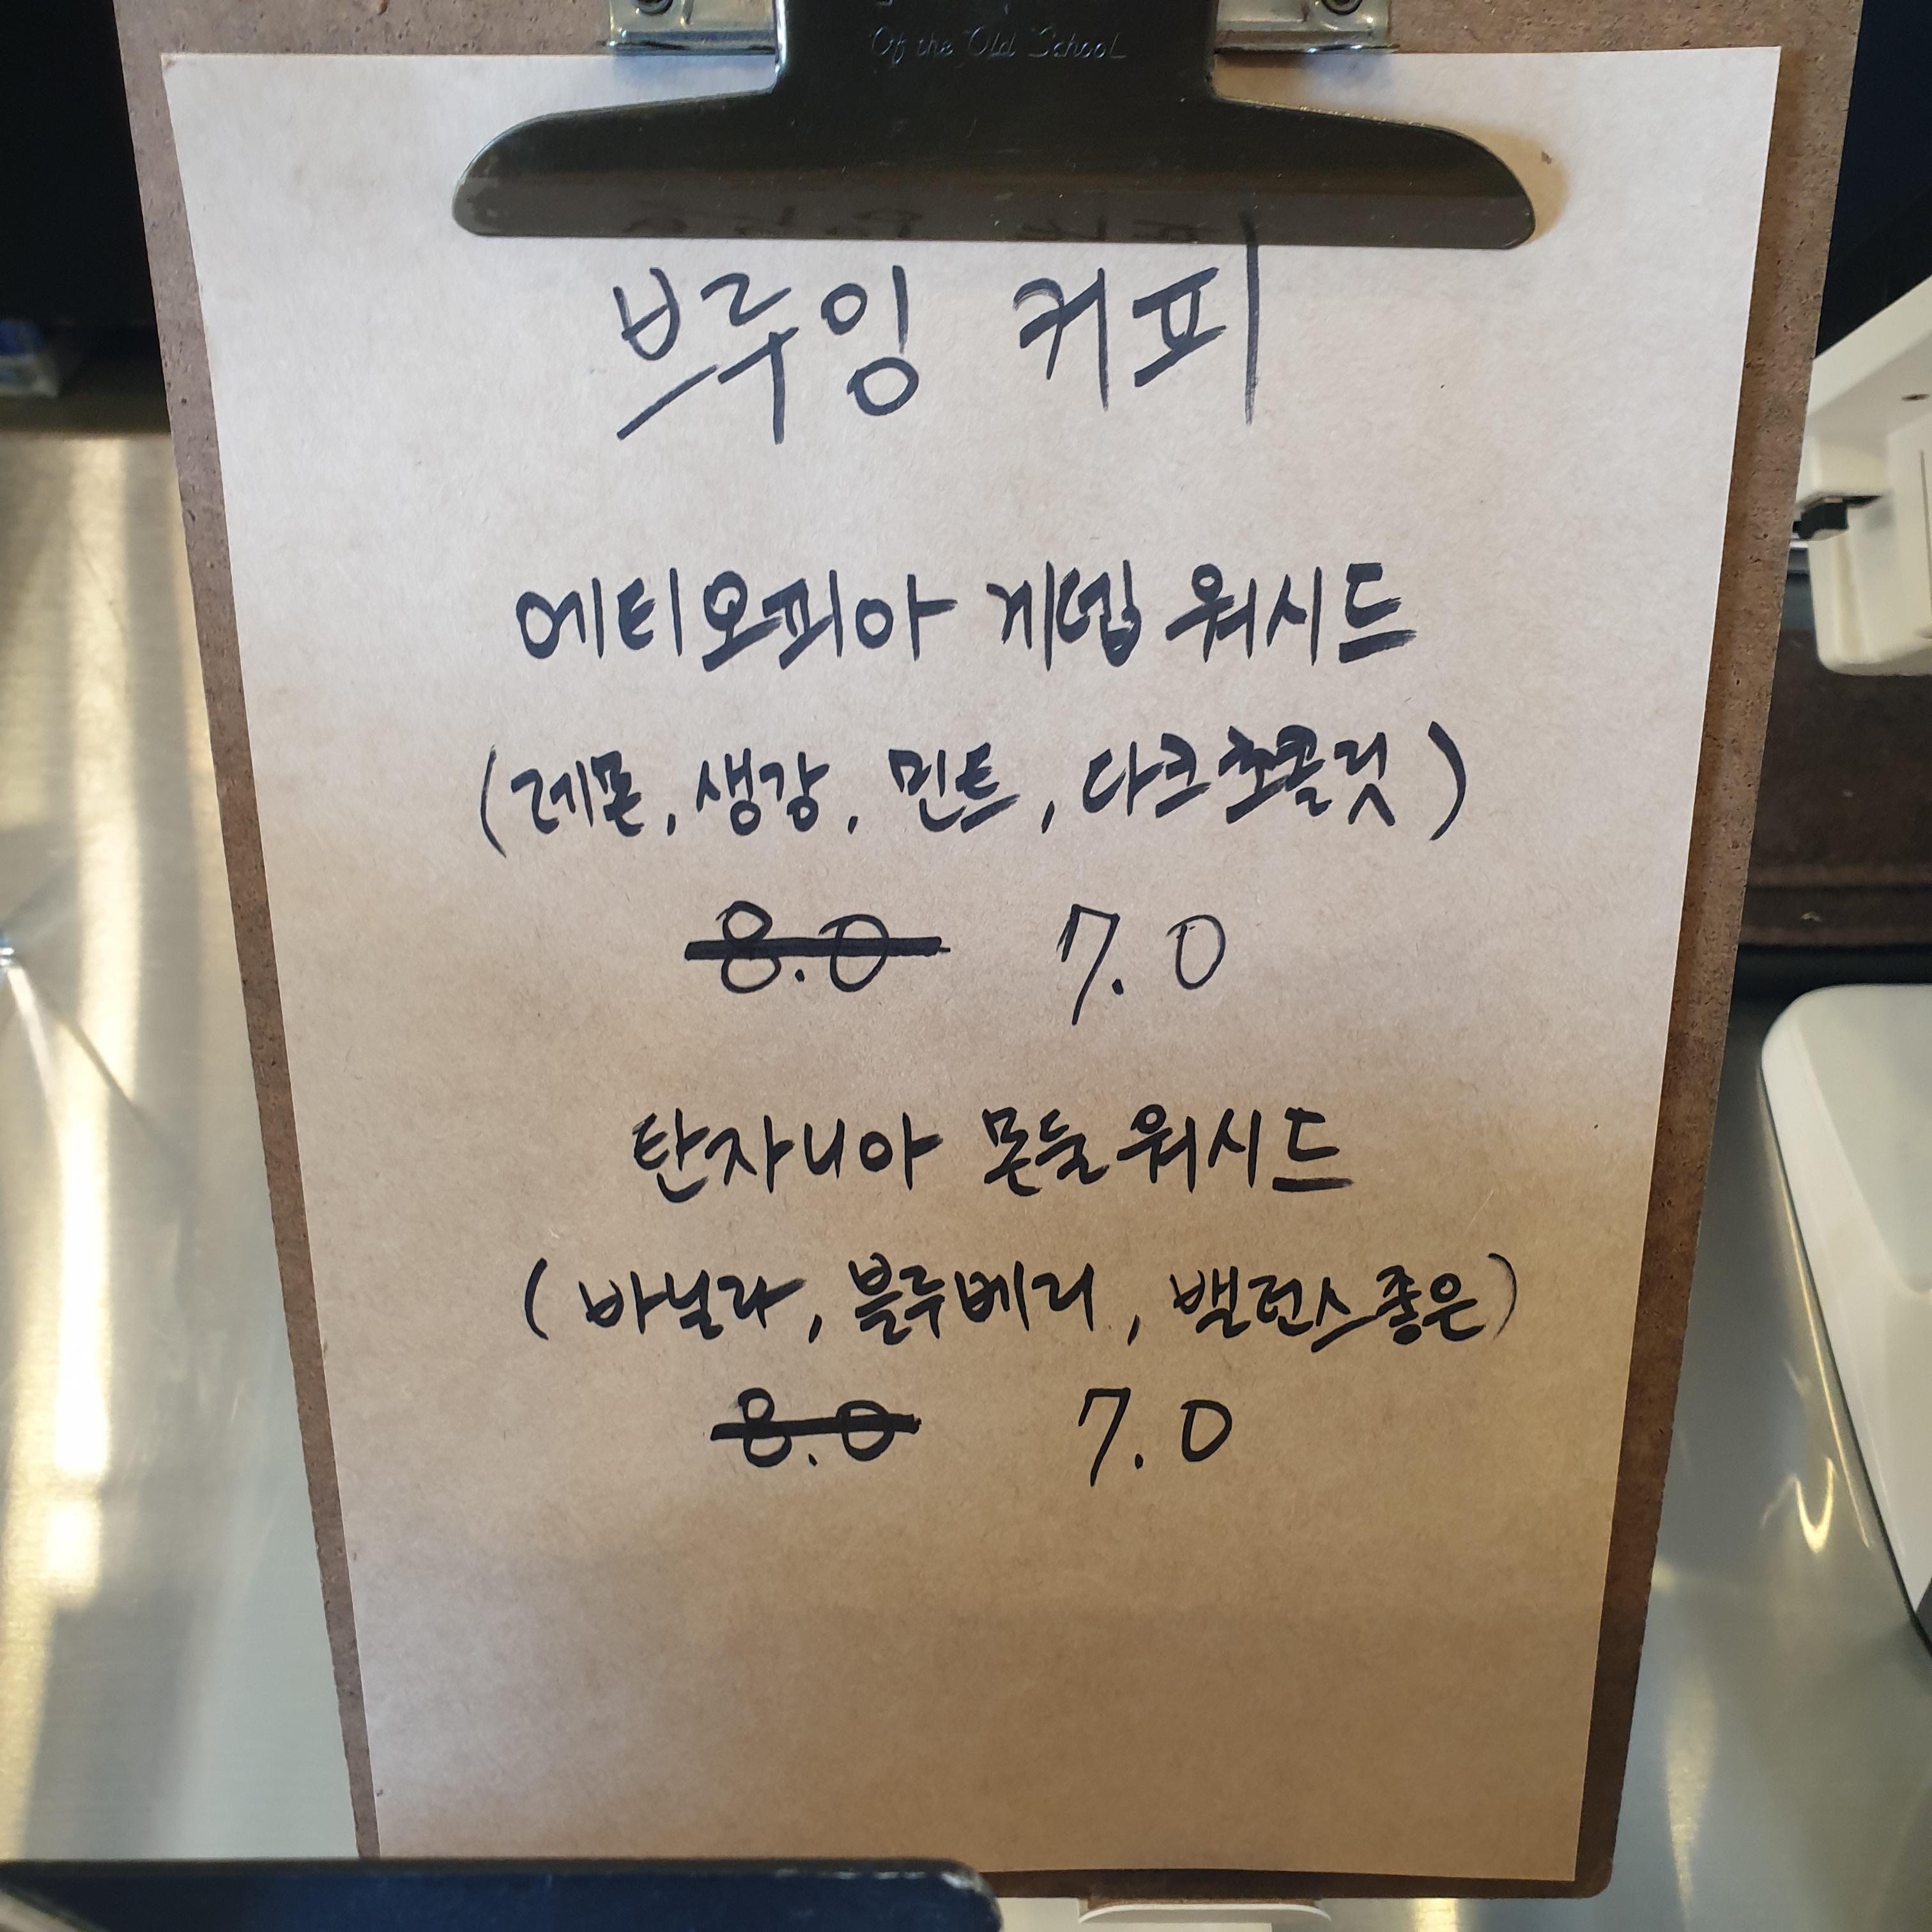 Of the Old School
브루잉 커피
에티오피아 게뎁 워시드
(레몬, 생강, 민트, 다크초콜릿)
8.0 7.0
탄자니아 몬둘 워시드
(바닐라, 블루베리, 밸런스좋은)
8.0 7.0